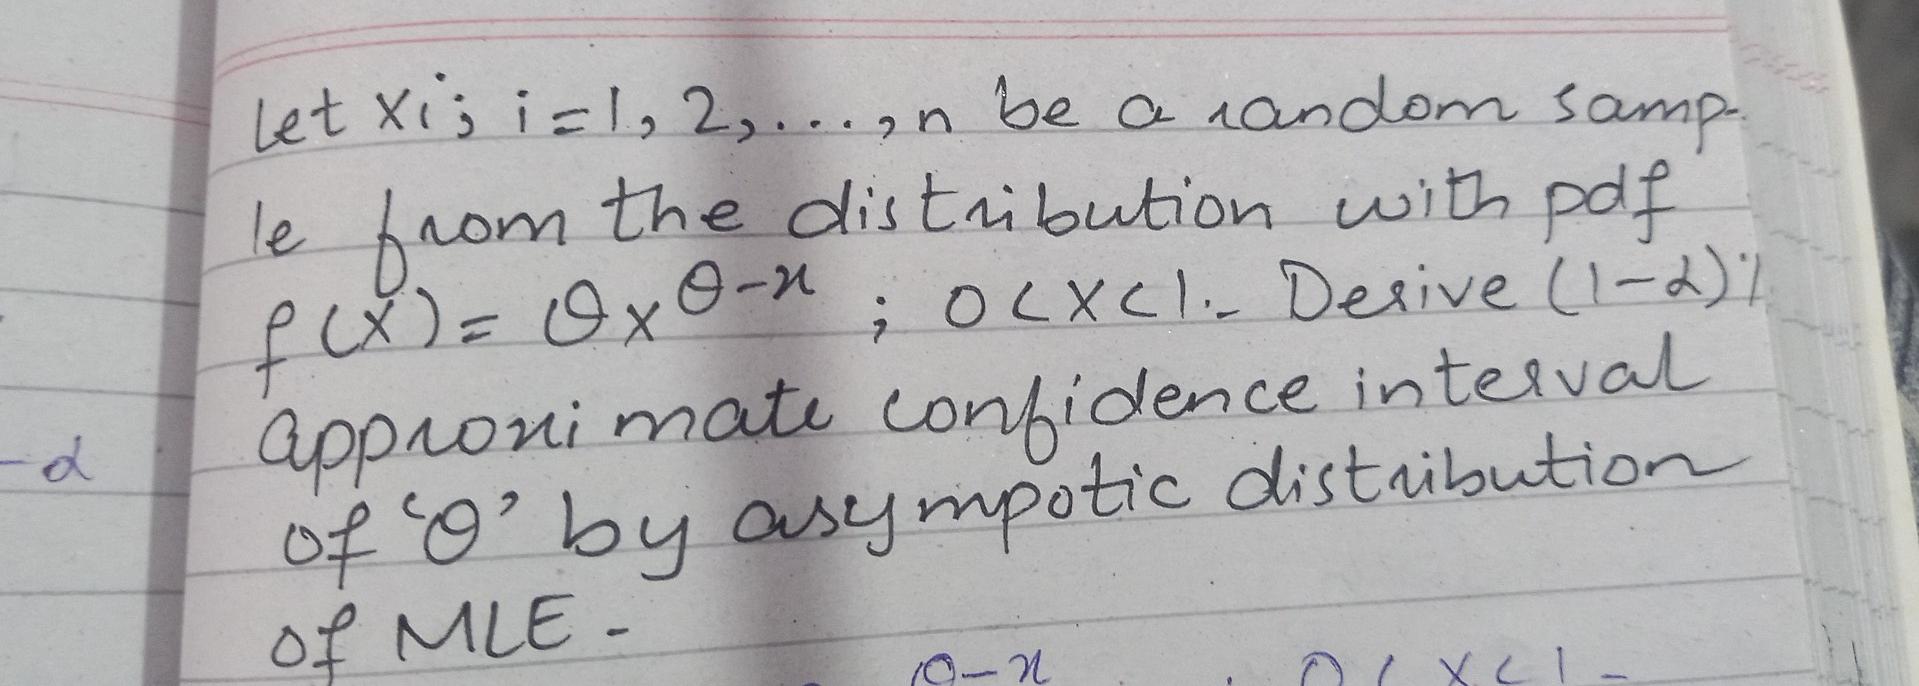 Let Xi; i=1, 2,...,n be a random samp-
le from the distribution with pdf
f(X)= θx^θ-x ; 0<X<1. Derive (1-α)%
-α
approximate confidence interval
of 'θ' by asympotic distribution
of MLE -
θ-x ; 0<X<1-